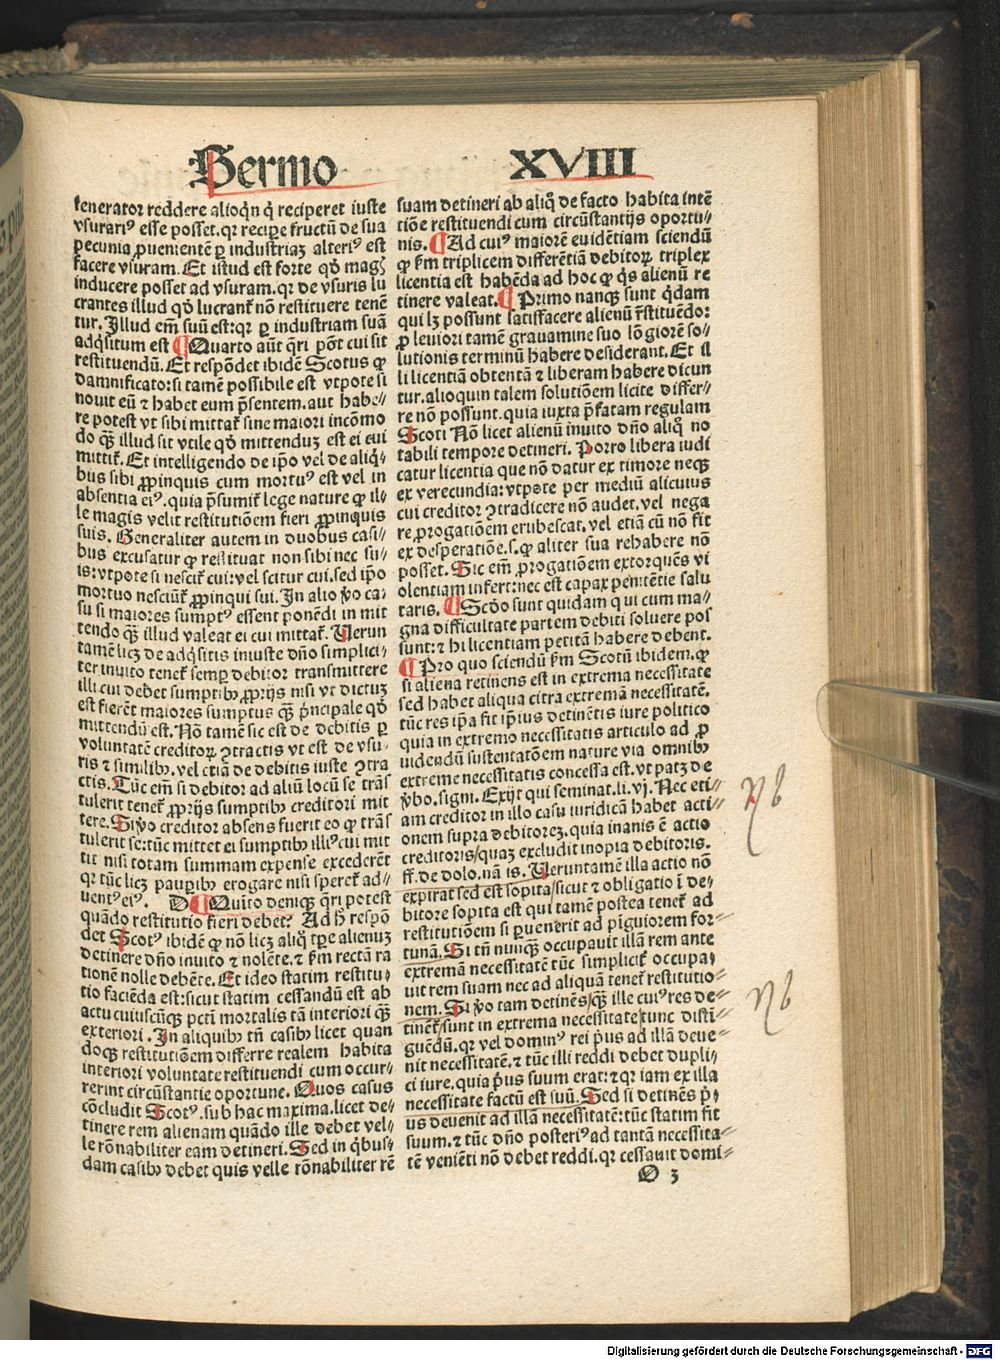 Sermo XVIII
fenerator reddere alioqn q̇ reciperet iuste
vsurariꝰ esse posset. qꝛ recipe fructū de sua
pecunia ꝓuenientē ꝑ industriaꝫ alteriꝰ est
facere vsuram. Et istud est forte qđ magꝭ
inducere posset ad vsuram. qꝛ de vsuris lu
crantes illud qđ lucrant̄ nō restituere tenē
tur. Illud em̄ suū est: qꝛ ꝑ industriam suā
adq̇situm est ¶ Quarto aūt q̄ri pōt cui sit
restituendū. Et respōdet ibidē Scotus ꝙ
damnificato: si tamē possibile est vtpote si
nouit eū ⁊ habet eum p̄sentem. aut habe⸗
re potest vt sibi mittat̄ sine maiori incōmo
do q̄ꝫ illud sit vtile qđ mittenduꝫ est ei cui
mittit̄. Et intelligendo de ip̄o vel de aliq̇⸗
bus sibi ꝓpinquis cum mortuꝰ est vel in
absentia eiꝰ. quia p̄sumit̄ lege nature ꝙ il⸗
le magis velit restitutiōem fieri ꝓpinquis
suis. Generaliter autem in duobus casi⸗
bus excusatur ꝙ restituat non sibi nec su⸗
is: vtpote si nescit̄ cui: vel scitur cui. sed ip̄o
mortuo nesciūt̄ ꝓpinqui sui. In alio v̊o ca⸗
su si maiores sumptꝰ essent ponēdi in mit
tendo q̄ꝫ illud valeat ei cui mittat̄. Uerun
tamē licꝫ de adq̇sitis iniuste dn̄o simplici⸗
ter inuito tenet̄ semꝑ debitor transmittere
illi cui debet sumptibꝫ ꝓprijs nisi vt dictuꝫ
est fierēt maiores sumptus q̄ꝫ p̄ncipale qđ
mittendū est. Nō tamē sic est de debitis ꝑ
voluntatē creditoꝝ ↄtractis vt est de vsu⸗
ris ⁊ similibꝫ. vel etiā de debitis iuste ↄtra
ctis. Tūc em̄ si debitor ad aliū locū se trās
tulerit tenet̄ ꝓprijs sumptibꝫ creditori mit
tere. Si v̊o creditor absens fuerit eo ꝙ trās
tulerit se: tūc mittet ei sumptibꝫ illiꝰ cui mit
tit nisi totam summam expense excederēt
qꝛ tūc licꝫ pauꝑibꝫ erogare nisi speret̄ ad⸗
uentꝰ eiꝰ. D ¶ Quīto deniqꝫ q̄ri potest
quādo restitutio fieri debet? Ad h̄ respō
det Scotꝰ ibidē ꝙ nō licꝫ aliq̊ tꝑe alienuꝫ
detinere dn̄o inuito ⁊ nolēte. ⁊ ẜm rectā ra
tionē nolle debēte. Et ideo statim restitu⸗
tio faciēda est: sicut statim cessandū est ab
actu cuiuscūqꝫ pctī mortalis tā interiori q̄ꝫ
exteriori. In aliquibꝰ tn̄ casibꝰ licet quan
doqꝫ restitutiōem differre realem habita
interiori voluntate restituendi cum occur⸗
rerint circūstantie oportune. Quos casus
cōcludit Scotꝰ. sub hac maxima. licet de⸗
tinere rem alienam quādo ille debet vel⸗
le rōnabiliter eam detineri. Sed in q̇bus⸗
dam casibꝫ debet quis velle rōnabiliter rē
suam detineri ab aliq̊ de facto habita intē
tiōe restituendi cum circūstantijs oportu⸗
nis. ¶ Ad cuiꝰ maiorē euidētiam sciendū
ꝙ ẜm triplicem differētiā debitoꝝ triplex
licentia est habēda ad hoc ꝙ q̇s alienū re
tinere valeat. ¶ Primo nanqꝫ sunt q̇dam
qui lꝫ possunt satisfacere alienū r̄stituēdo:
ꝓ leuiori tamē grauamine suo lōgiorē so⸗
lutionis terminū habere desiderant. Et il
li licentiā obtentā ⁊ liberam habere dicun
tur. alioquin talem solutiōem licite differ⸗
re nō possunt. quia iuxta p̄fatam regulam
Scoti Nō licet alienū inuito dn̄o aliq̊ no
tabili tempore detineri. Porro libera iudi
catur licentia que nō datur ex timore neqꝫ
ex verecundia: vtpote per mediū alicuius
cui creditor ↄtradicere nō audet. vel nega
re ꝓrogatiōem erubescat. vel etiā cū nō fit
ex desperatiōe. s. ꝙ aliter sua rehabere nō
posset. Sic em̄ ꝓrogatiōem extorquēs vi
olentiam infert: nec est capax penitētie salu
taris. ¶ Scđo sunt quidam qui cum ma⸗
gna difficultate partem debiti soluere pos
sunt: ⁊ hi licentiam petitā habere debent.
¶ Pro quo sciendū ẜm Scotū ibidem. ꝙ
si aliena retinens est in extrema necessitate
sed habet aliqua citra extremā necessitatē.
tūc res ip̄a fit ip̄ius detinētis iure politico
quia in extremo necessitatis articulo ad ꝓ
uidendū sustentatōem nature via omnibꝫ
extreme necessitatis concessa est. vt patꝫ de
v̊bo. signi. Exijt qui seminat. li. vj. Nec eti⸗
am creditor in illo casu iuridicā habet acti⸗
onem supra debitoreꝫ. quia inanis ē actio
creditoris/quaꝫ excludit inopia debitoris.
ff. de dolo. nā is. Ueruntamē illa actio nō
expirat sed est sopita/sicut ⁊ obligatio ī de⸗
bitore sopita est qui tamē postea tenet̄ ad
restitutiōem si ꝑuenerit ad pīguiorem for⸗
tunā. Si tn̄ nunqꝫ occupauit illā rem ante
extremā necessitatē tūc simplicit̄ occupa⸗
uit rem suam nec ad aliquā tenet̄ restitutio⸗
nem. Si v̊o tam detinēs/q̄ꝫ ille cuiꝰ res de⸗
tinet̄/sunt in extrema necessitate tunc distī⸗
guēdū. qꝛ vel dominꝰ rei p̄us ad illā deue⸗
nit necessitatē. ⁊ tūc illi reddi debet dupli⸗
ci iure. quia p̄us suum erat: ⁊ qꝛ iam ex illa
necessitate factū est suū. Sed si detinēs p̄i⸗
us deuenit ad illā necessitatē: tūc statim fit
suum. ⁊ tūc dn̄o posteriꝰ ad tantā necessita⸗
tē veniēti nō debet reddi. qꝛ cessauit domi⸗
O 3
Nb
Nb
Digitalisierung gefördert durch die Deutsche Forschungsgemeinschaft - DFG